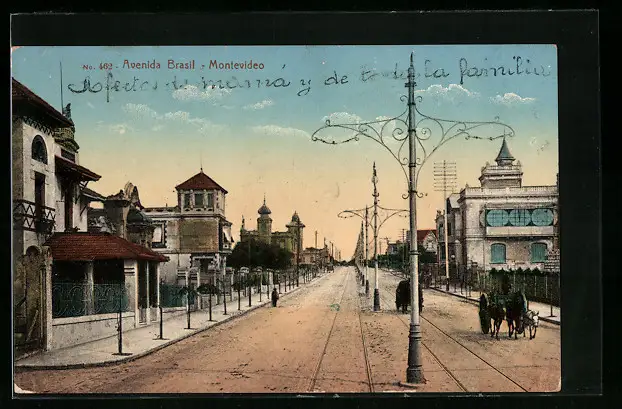 No. 462 - Avenida Brasil - Montevideo
Afectos de mamá y de toda la familia